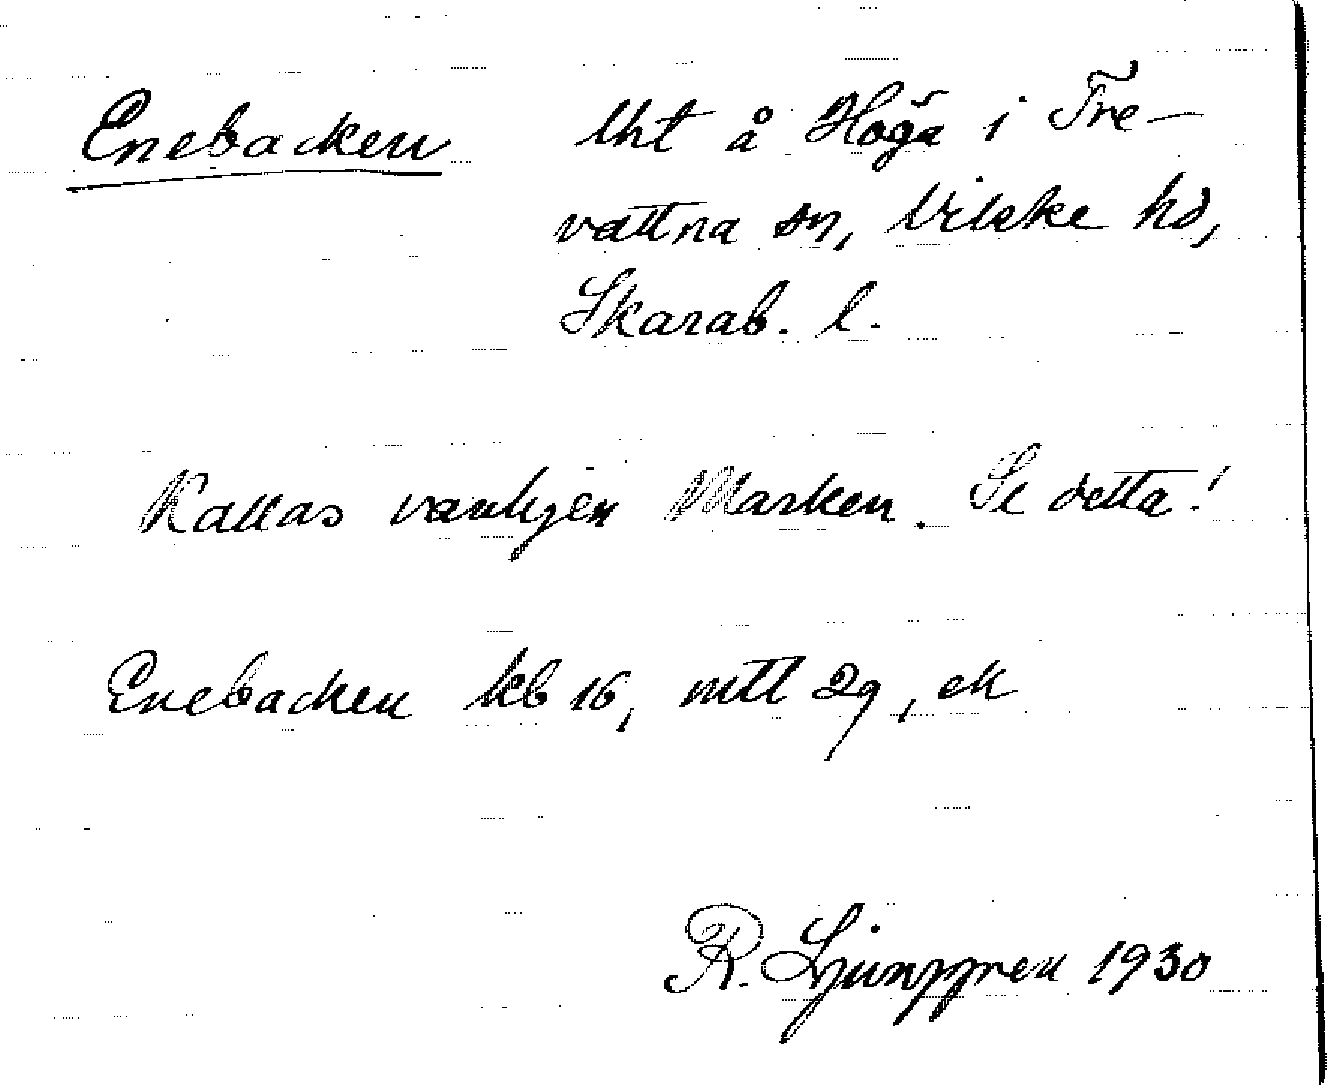 Enebacken lht å Höga i Tre-
vattna sn, Vilske hd,
Skarab. l.
Kallas vanligen Marken. Se detta!
Enebacken kb 16, mtl 29, ek
R. Ljunggren 1930